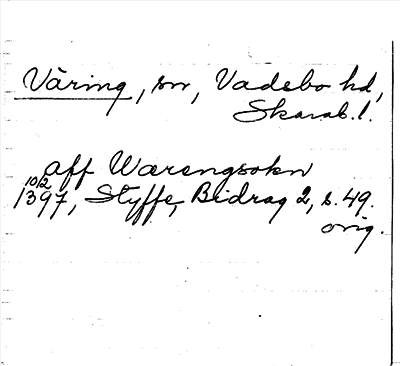 Våring, sn, Vadsbo hd,
Skarab. l.
aff Wærengsokn
10/2 1397, Styffe, Bidrag 2, s. 49.
orig.